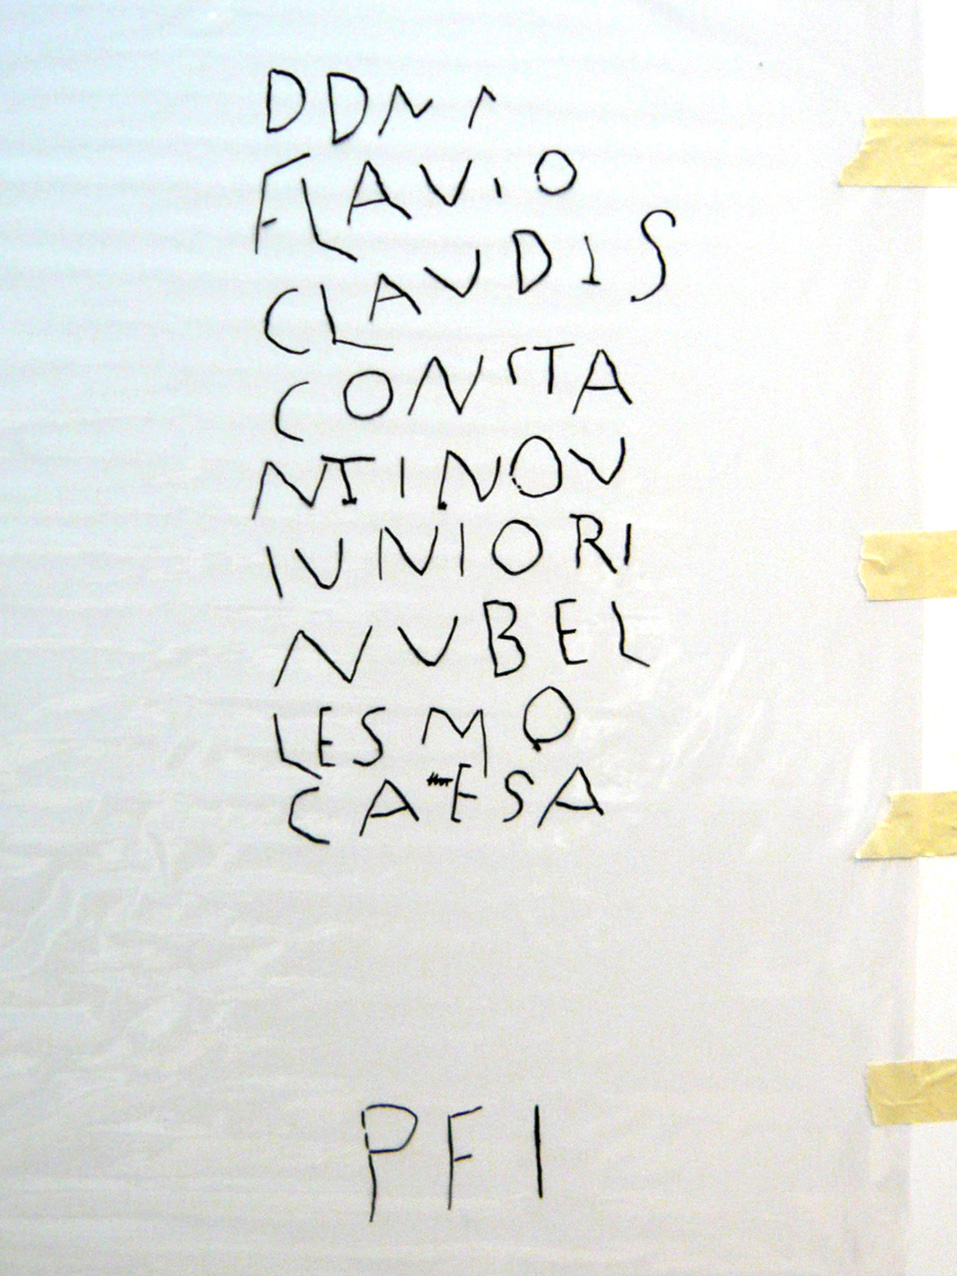 DDN
FLAVIO
CLAVDIS
CONSTA
NTINOV
IUNIORI
NUBEL
LESMO
CAESA
PFI